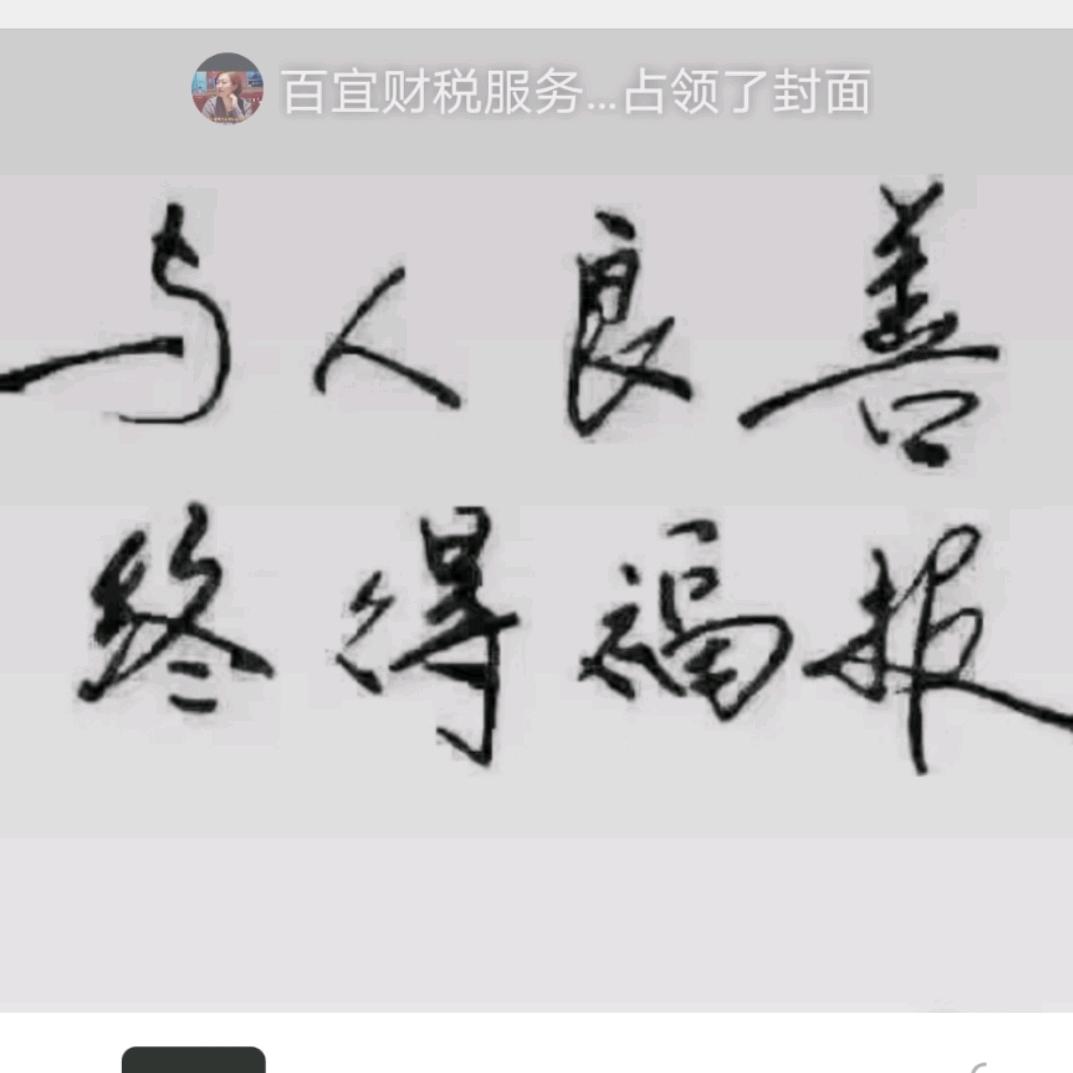 百宜财税服务...占领了封面
与人良善
终得福报